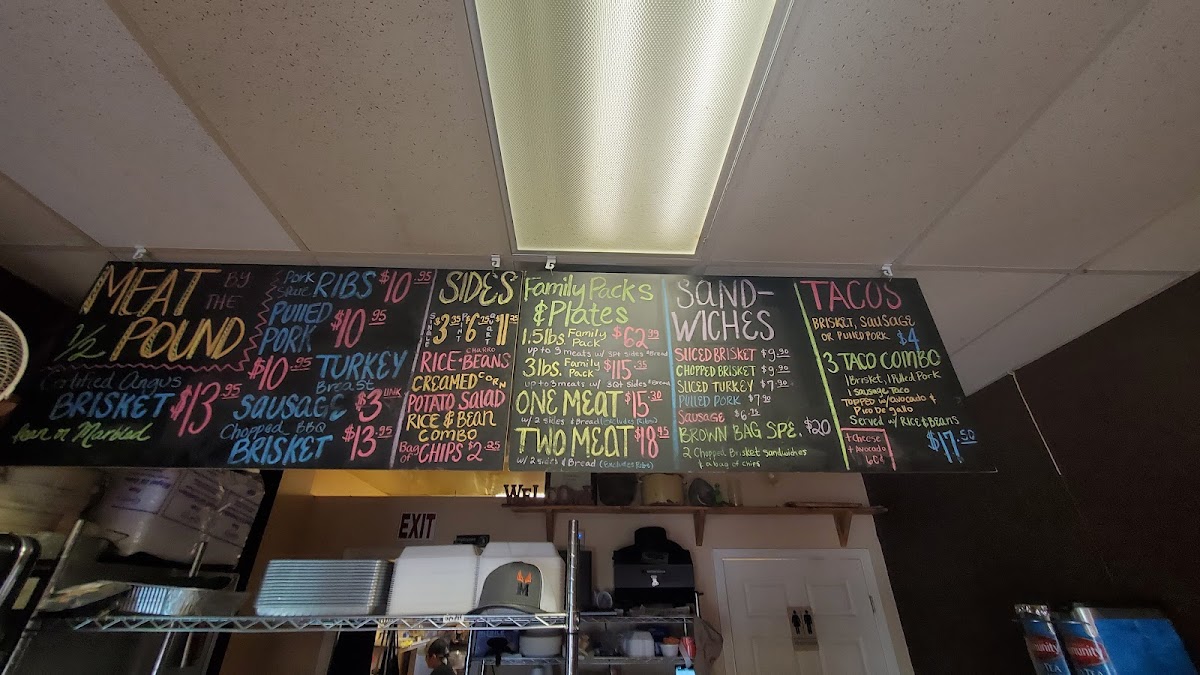 MEAT BY
THE
1/2 POUND
Certified Angus
BRISKET $13.95
Lean or Marbled
Pork
Spare RIBS $10.95
PULLED
PORK $10.95
$10.95 TURKEY
Breast
SAUSAGE $3 LINK
Chopped BBQ
BRISKET $13.95
SIDES
SINGLE $3.35 PINT $6.25 QUART $11.25
CHARRO
RICE-BEANS
CREAMED CORN
POTATO SALAD
RICE & BEAN
COMBO
Bag of CHIPS $2.25
Family Packs
& Plates
1.5lbs. Family Pack $62.99
up to 3 meats w/ 3Pt Sides & Bread
3lbs. Family Pack $115.35
up to 3 meats w/ 3Qt Sides & Bread
ONE MEAT $15.30
w/ 2 sides & Bread (Excludes Ribs)
TWO MEAT $18.95
w/ 2 sides & Bread (Excludes Ribs)
SAND-
WICHES
SLICED BRISKET $9.90
CHOPPED BRISKET $9.90
SLICED TURKEY $7.90
PULLED PORK $7.90
SAUSAGE $6.75
BROWN BAG SPE. $20
2 Chopped Brisket Sandwiches
& a bag of chips
TACOS
BRISKET, SAUSAGE
OR PULLED PORK $4
3 TACO COMBO
1 Brisket, 1 Pulled Pork
SAUSAGE TACO
TOPPED W/ AVOCADO &
PICO DE GALLO
SERVED W/ RICE & BEANS
+ CHEESE
+ AVOCADO
60¢
$17.50
WEL
EXIT
M
munity
TEA
munity
TEA